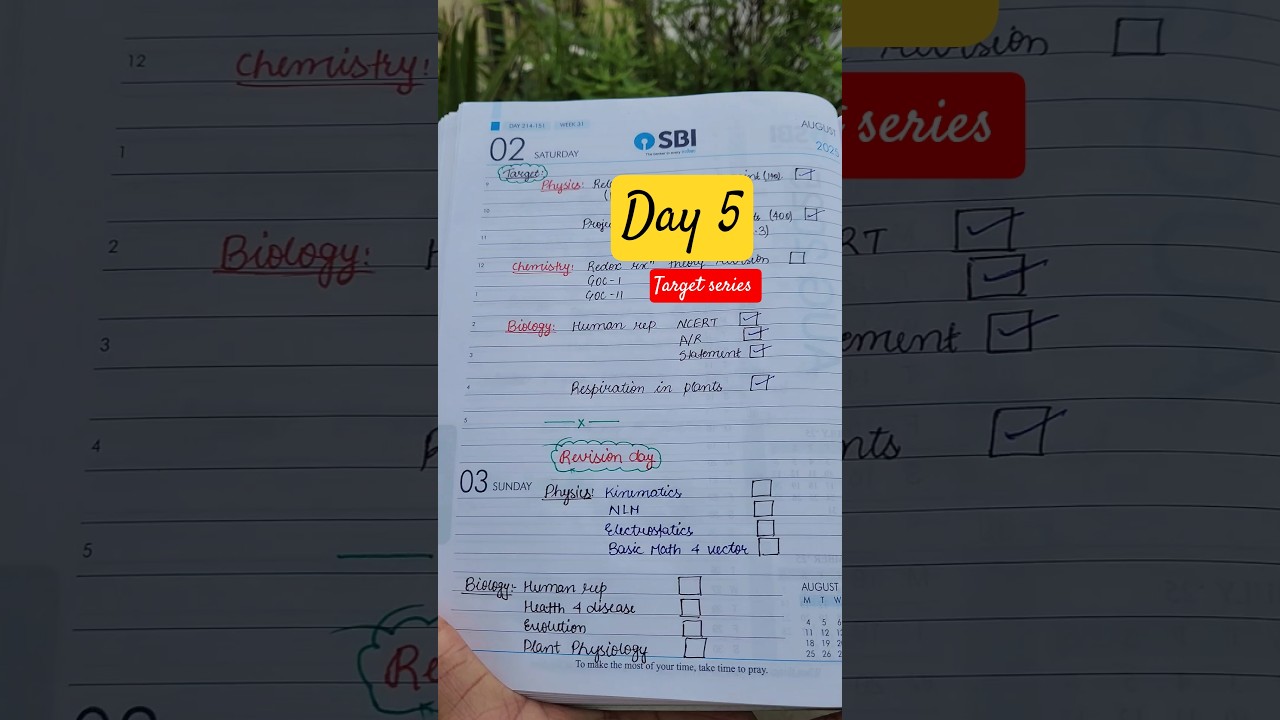 DAY 214-151 WEEK 31
AUGUST
2025
02 SATURDAY
SBI
Target:
Physics:
Day 5
Target series
(400)
-3)
Chemistry: Redox Rxn theory Revision
GOC-I
GOC-II
Biology: Human rep NCERT
A/R
Statement
Respiration in plants
x
Revision day
03 SUNDAY
Physics: Kinematics
NLM
Electrostatics
Basic Math & vector
Biology:- Human rep
Health & disease
Evolution
Plant Physiology
AUGUST
M T W
4 5 6
11 12
18 19
25 26
To make the most of your time, take time to pray.
12 Chemistry:
1
2 Biology:
3
4
5
Revision
series
ement
nts